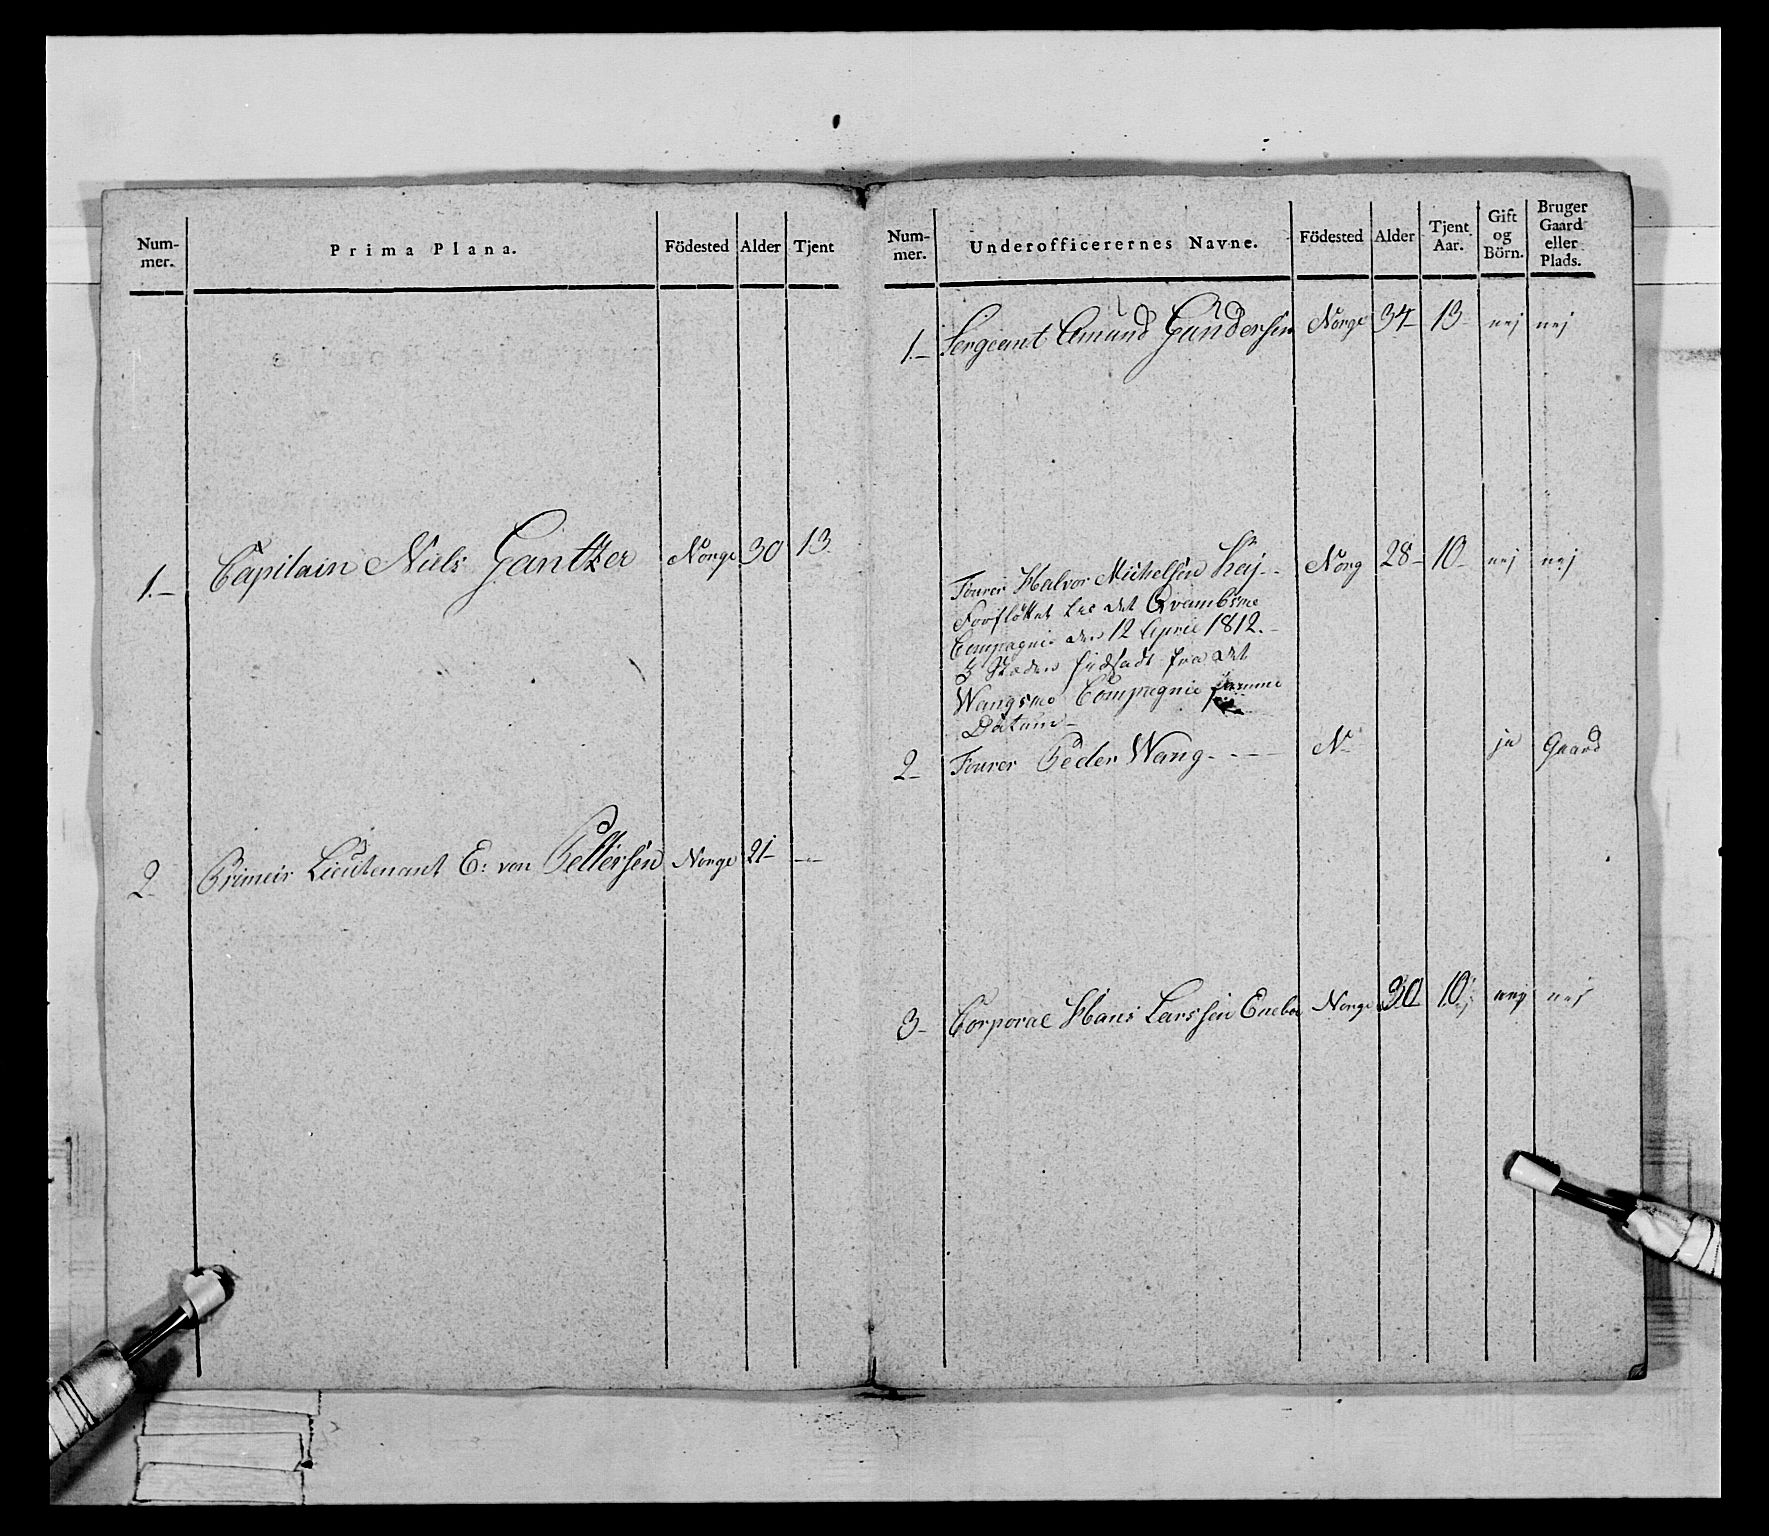 Num-
mer.
Prima Plana.
Födested
Alder
Tjent
1.- Capitain Niels Gantzer Norge 30 13
2 Primeir Lieutenant E: von Pettersen Norge 21- ---
Num-
mer.
Underofficerernes Navne.
Födested
Alder
Tjent
Aar.
Gift
og
Börn.
Bruger
Gaard
eller
Plads.
1.- Sergeant Amund Gundersen Norge 34- 13- nej nej
Fourer Halvor Michelsen Norg 28- 10- nej nej
Forflöttet til det Qvambsme
Compagnie den 12 April 1812.-
I Stæden indsadt fra det
Wangsme Compagnie samme
Datum-
2- Fourer Peder Wang. - - - N- ja Gaard
3- Corporal Hans Larssen Eneboe Norge 30 10 nej nej